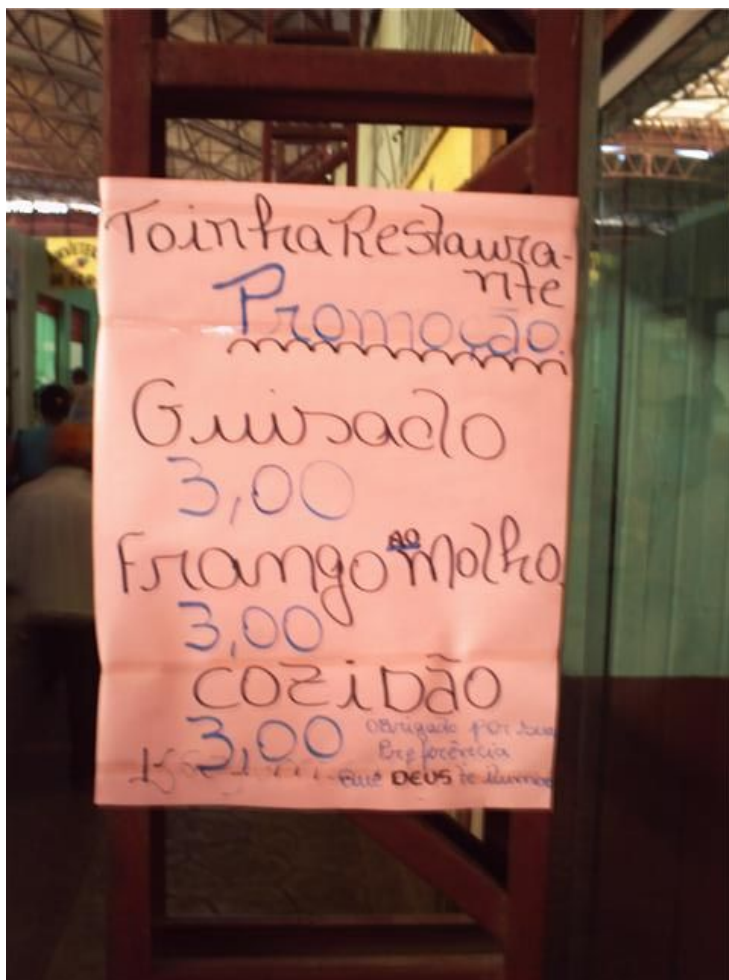 Toinha Restaura-
nte
Promoção.
Guisado
3,00
Frango ao molho
3,00
COZiDão
3,00
Obrigado por sua
Preferência
Que DEUS te ilumine